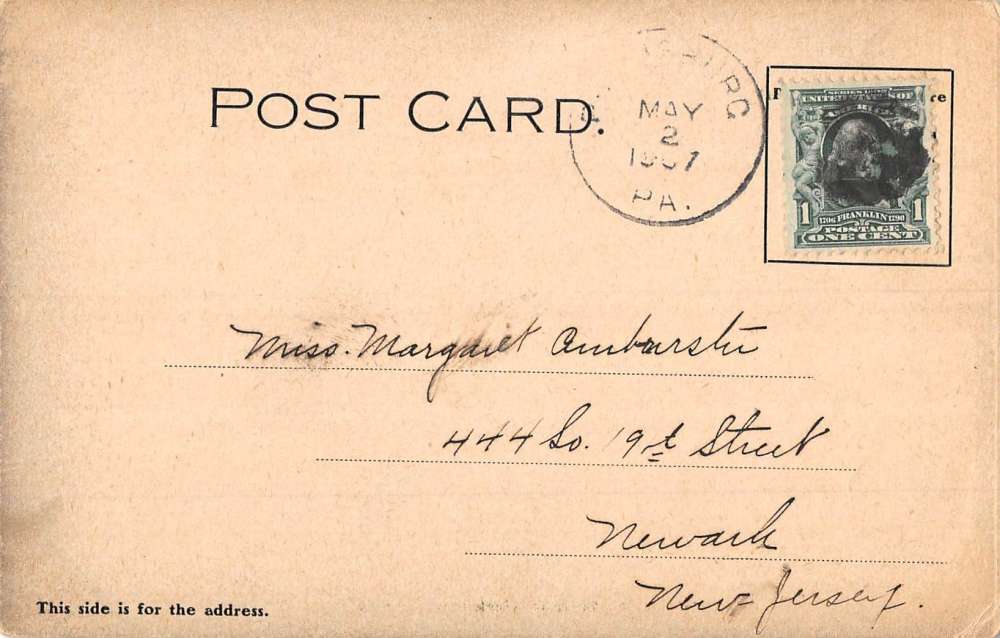 POST CARD.
MAY
2
1907
PA.
SERIES 1902
UNITED STATES OF
1 1706 FRANKLIN 1790 1
POSTAGE
ONE CENT
Miss. Margaret
444 So. 19th Street
Newark
New-Jersey.
This side is for the address.